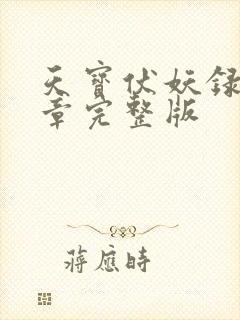 天寶伏妖録
章完整版
蔣應時